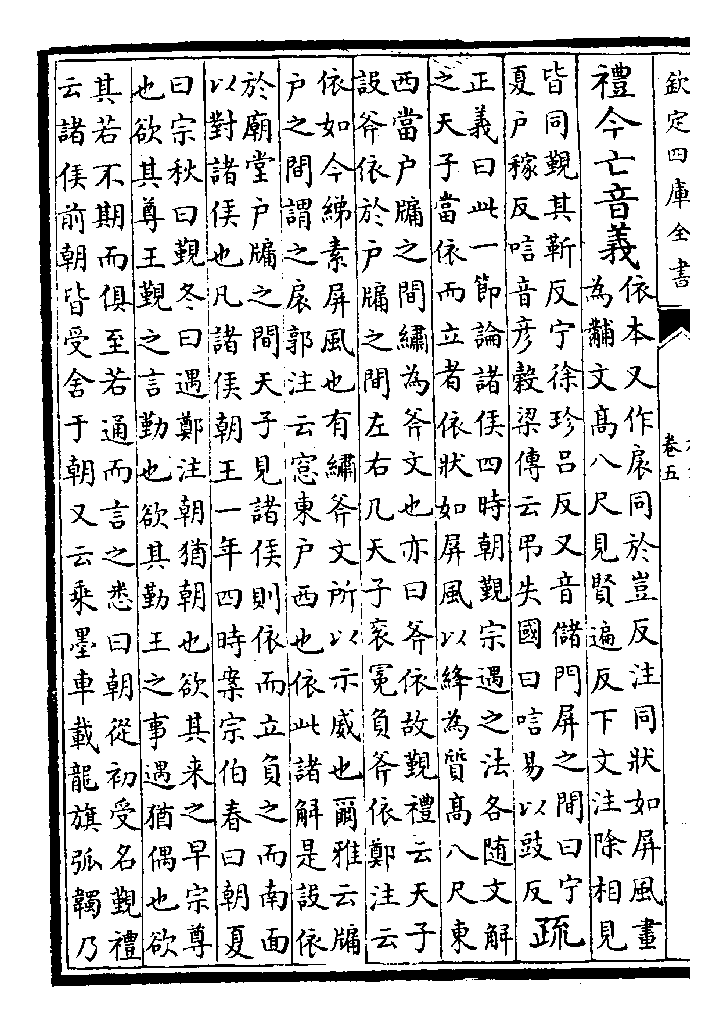 欽定四庫全書
卷五
禮今亡音義
依本又作扆同於豈反注同狀如屏風畫
為黼文髙八尺見賢遍反下文注除相見
皆同覲其靳反宁徐珍呂反又音儲門屏之間曰宁
夏戶稼反唁音彦糓梁傳云弔失國曰唁易以豉反
疏
正義曰此一節論諸侯四時朝覲宗遇之法各随文解
之天子當依而立者依狀如屏風以絳為質髙八尺東
西當戶牖之間繡為斧文也亦曰斧依故覲禮云天子
設斧依於戶牖之間左右几天子衮冕負斧依鄭注云
依如今綈素屏風也有繡斧文所以示威也爾雅云牖
戶之間謂之扆郭注云窓東戶西也依此諸解是設依
於廟堂戶牖之間天子見諸侯則依而立負之而南面
以對諸侯也凡諸侯朝王一年四時案宗伯春曰朝夏
曰宗秋曰覲冬曰遇鄭注朝猶朝也欲其来之早宗尊
也欲其尊王覲之言勤也欲其勤王之事遇猶偶也欲
其若不期而俱至若通而言之悉曰朝從初受名覲禮
云諸侯前朝皆受舍于朝又云乘墨車載龍旗弧韣乃